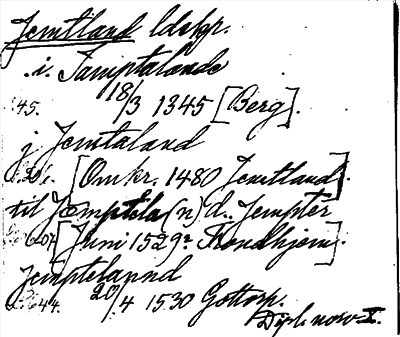 Jemtland ldskp.
i Jamptalande
:45. 18/3 1345 [Berg].
j Jemtaland
[Omkr. 1480 Jemtland].
til Jæmptela(n)d.. Jempter
607 [Juni 1529 Trondhjem].
Jemptelannd
644. 20/4 1530 Gottorp.
Dipl. norv. I.